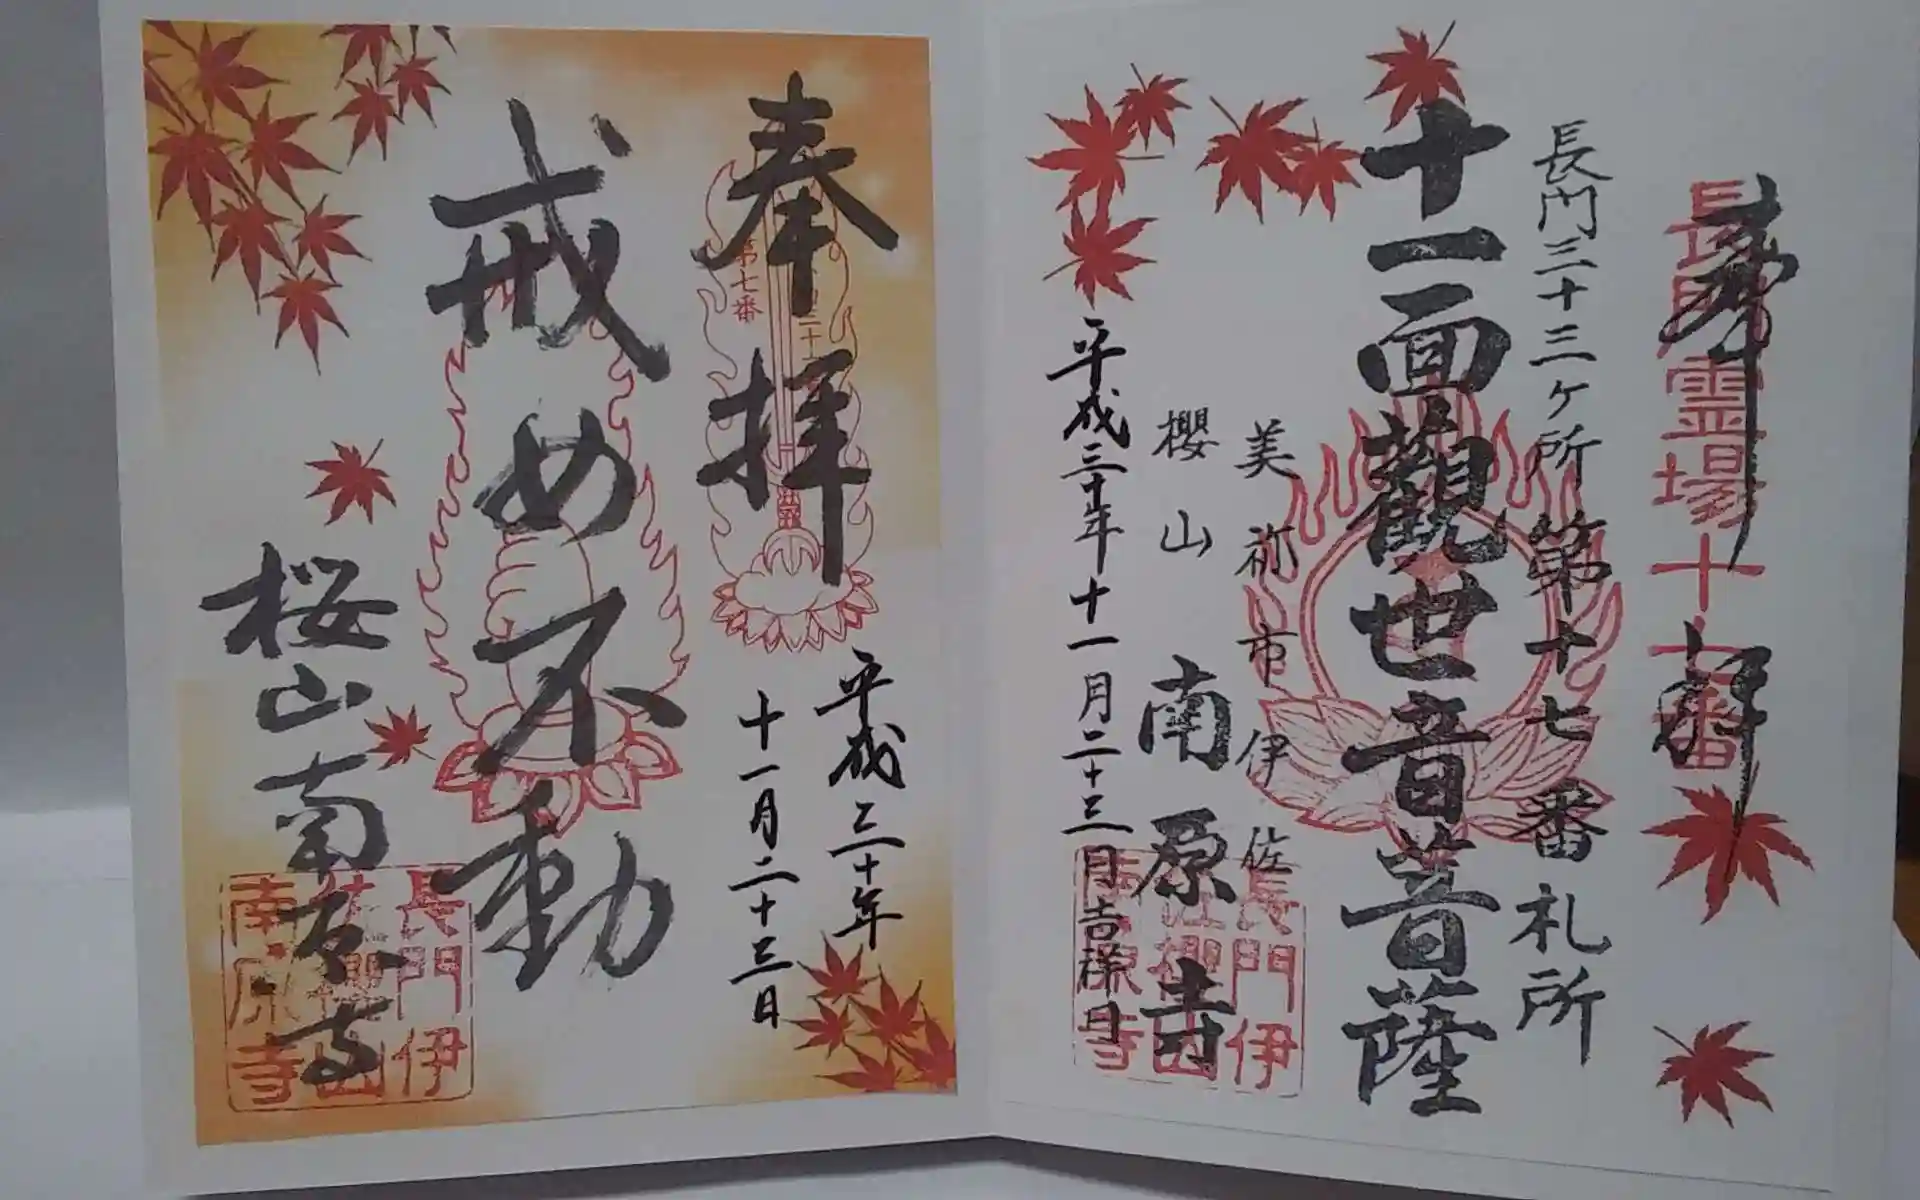 奉拝
長門霊場十七番
長門三十三ヶ所第十七番札所
十一面觀世音菩薩
美祢市伊佐
櫻山南原寺
平成三十年十一月二十三日吉祥日
長門伊
佐櫻山
南原寺
奉拝
第七番
平成三十年
十一月二十三日
戒め不動
桜山南原寺
長門伊
佐櫻山
南原寺